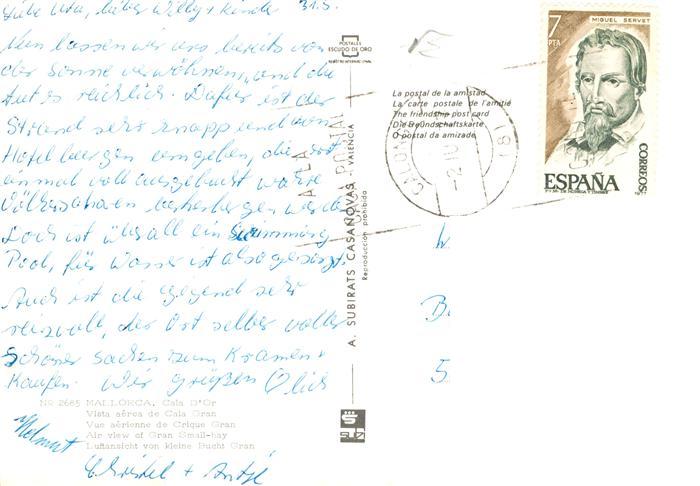 Liebe Uta, lieber Willy + Kinder 31.5.
Nun lassen wir uns bereits von
der Sonne verwöhnen, und die
tut es reichlich. Dafür ist der
Strand sehr knapp und von
Hotelburgen umgeben, die
einmal voll ausgebucht
beherbergen werden
Doch ist überall ein Swimming
Pool, für Wasser ist also gesorgt.
Auch ist die Gegend sehr
reizvoll, der Ort selber voller
schöner Sachen zum Kramen +
Kaufen. Wir grüßen ♡lich
Helmut
Christel + Antje
No 2685 MALLORCA. Cala D'Or
Vista aérea de Cala Gran
Vue aérienne de Crique Gran
Air view of Gran Small-bay
Luftansicht von kleine Bucht Gran
POSTALES
ESCUDO DE ORO
A. SUBIRATS CASANOVAS - VALENCIA
Reproducción prohibida
La postal de la amistad
La carte postale de l'amitié
The friendship post card
Die Freundschaftskarte
O postal da amizade
MIGUEL SERVET
7
PTA
ESPAÑA
CORREOS
1977
B.
5